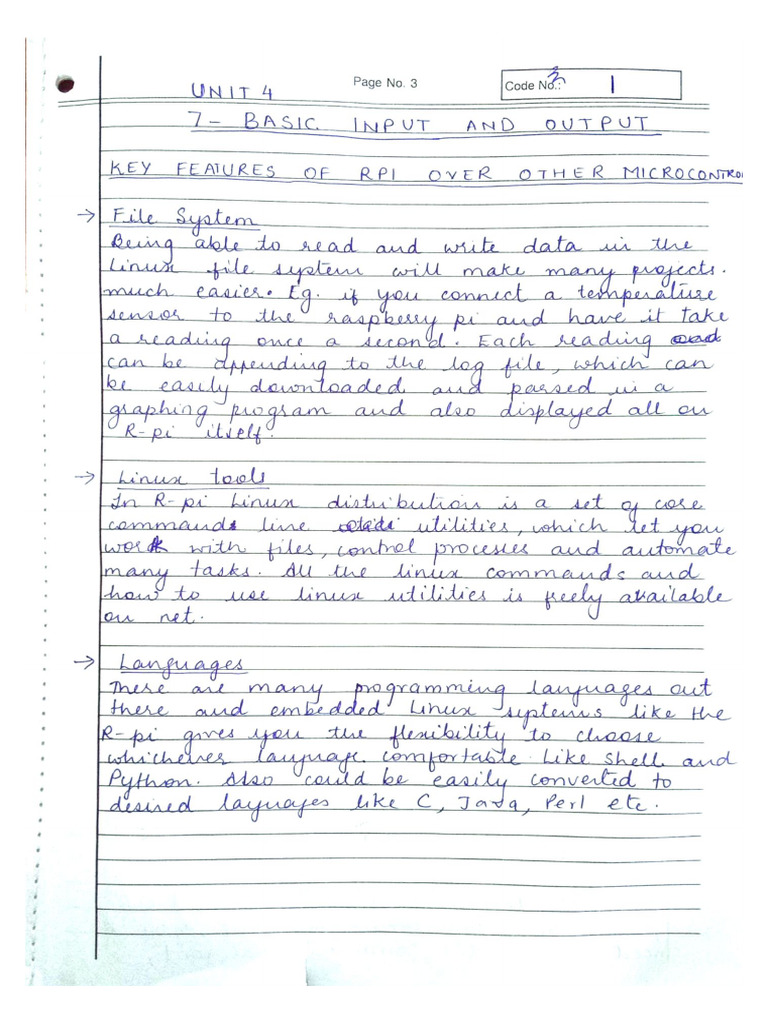 UNIT 4
Page No. 3
Code No.: 3 1
7- BASIC INPUT AND OUTPUT
KEY FEATURES OF RPI OVER OTHER MICROCONTRO
→ File System
Being able to read and write data in the
Linux file system will make many projects.
much easier. Eg. if you connect a temperature
sensor to the raspberry pi and have it take
a reading once a second. Each reading
can be appending to the log file, which can
be easily downloaded and parsed in a
graphing program and also displayed all on
R-pi itself.
→ Linux tools
In R-pi Linux distribution is a set of core
commands line utilities, which let you
work with files, control processes and automate
many tasks. All the linux commands and
how to use linux utilities is freely available
on net.
→ Languages
There are many programming languages out
there and embedded Linux systems like the
R-pi gives you the flexibility to choose
whichever language comfortable like shell and
Python. Also could be easily converted to
desired layuages like C, Java, Perl etc.